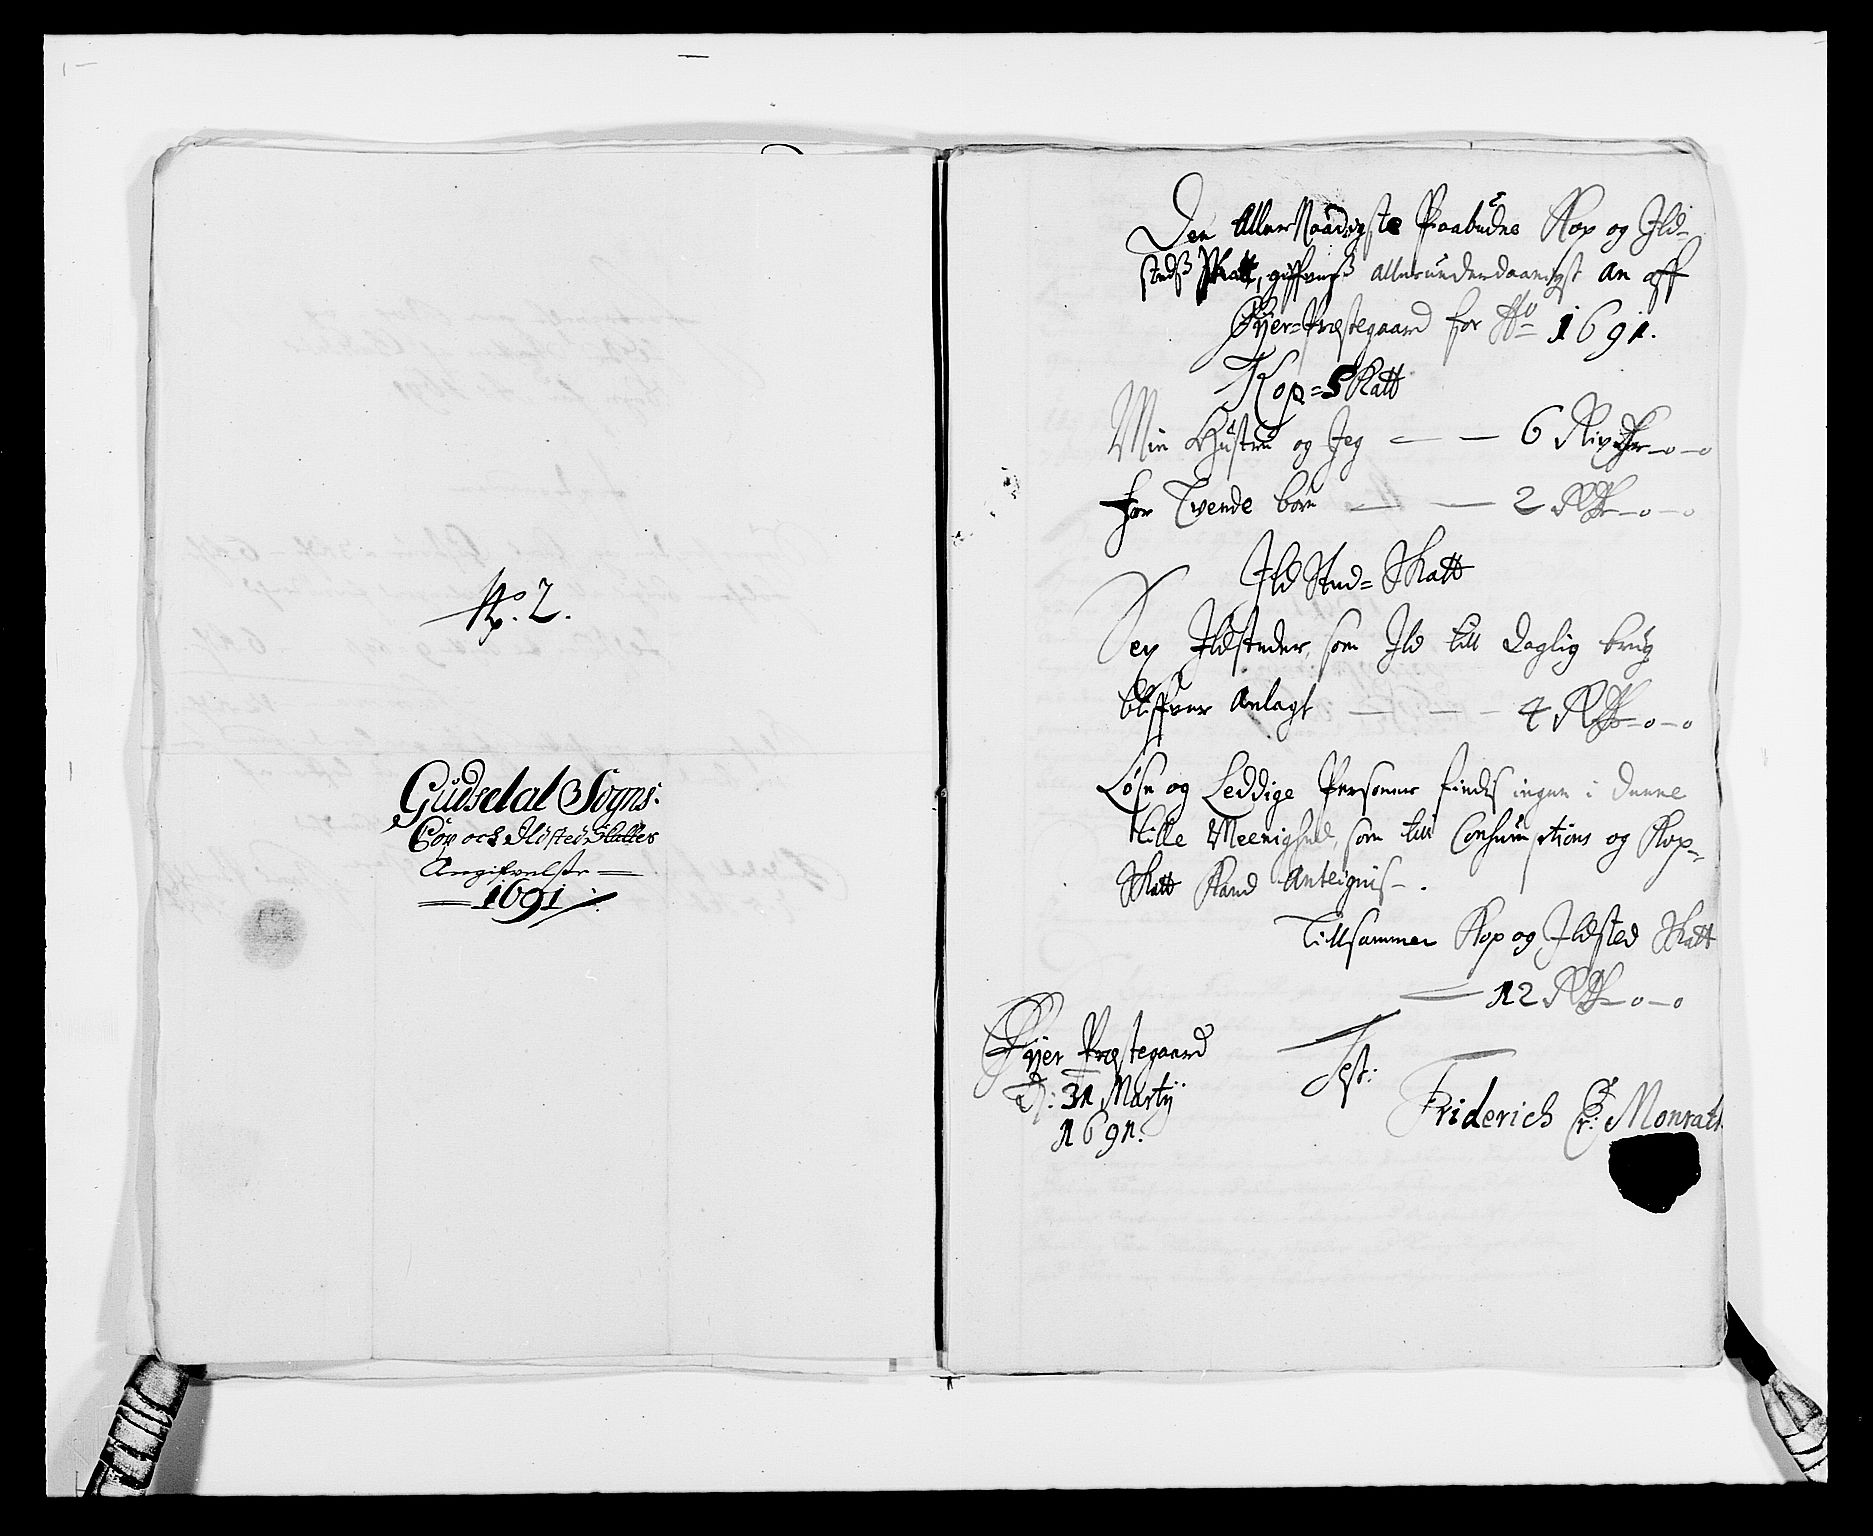 No. 2.
Gudsdal Sogns:
Cop och Ildsted Skattes
Angifvelse
1691
Den AllerNaadigste Paabudne Kop og Ild-
steds Skatt, giffves allerunderdaanigst an aff
Øyer-Præstegaard for Ao 1691.
Kop-Skatt
Min Hustru og Jeg — — 6 Rixdlr – o – o
for Tvende børn — — 2 Rdr – o – o
Ild Sted-Skatt
Sex Ildsteder, som Ild till Daglig brug
bliffver Anlagt — — – 4 Rdr – o – o
Løse og Leddige Personer findes ingen i denne
lille Meenighed, som till Consumptions og Kop-
Skatt Kand Anteignis – .
Tillsammen Kop og Ildsted Skatt
— 12 Rdr – o – o
Øyer Præstegaard
D: 31 Martij
1691.
Test:
Friderich Chr: Monrath